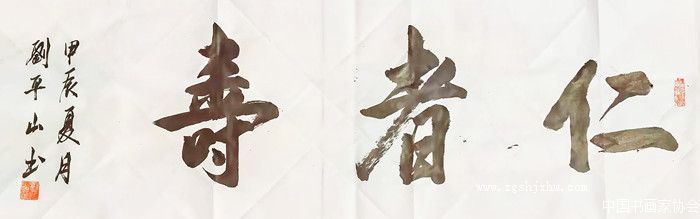 仁者寿
甲辰夏月
刘平山书
www.zgshjxhw.com
中国书画家协会